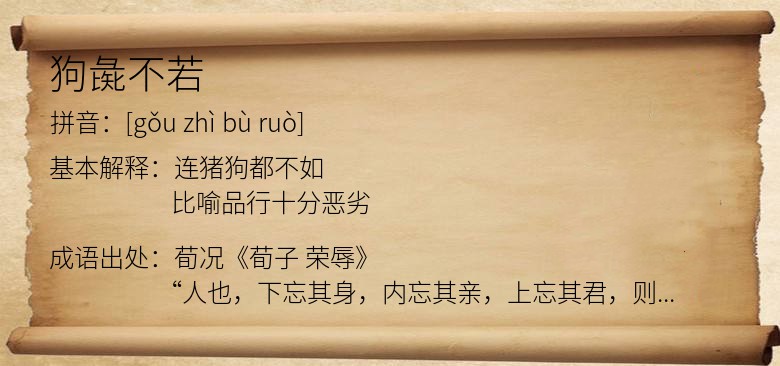 狗彘不若
拼音：[gǒu zhì bù ruò]
基本解释：连猪狗都不如
比喻品行十分恶劣
成语出处：荀况《荀子 荣辱》
“人也，下忘其身，内忘其亲，上忘其君，则...